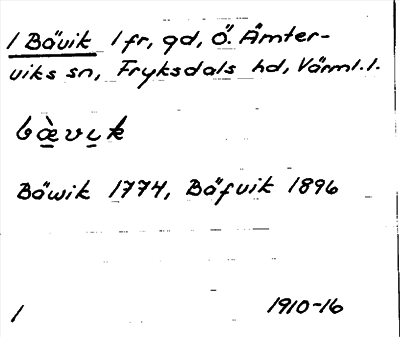 1 Bävik 1 fr, gd, Ö. Ämter-
viks sn, Fryksdals hd, Värml. l.
bæ̀vi̠k
Bäwik 1774, Bäfvik 1896
1 1910-16